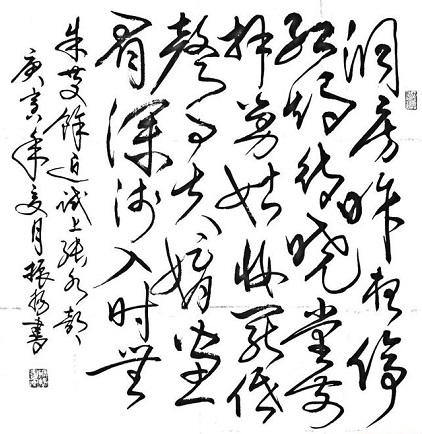 洞房昨夜停
红烛待晓堂前
拜舅姑妆罢低
聲问夫婿画
眉深浅入时無
朱慶餘近试上张水部
庚寅年夏月振书